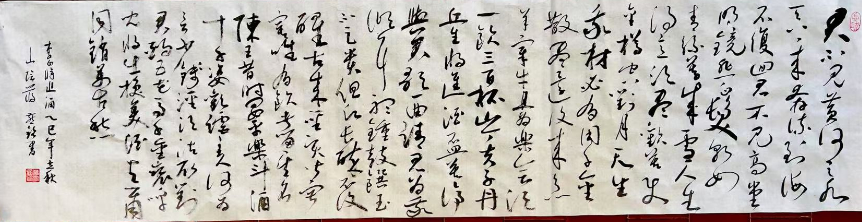 君不見黃河之水
天上來奔流到海
不復回君不見高堂
明鏡悲白髮朝如
青絲暮成雪人生
得意須盡歡莫使
金樽空對月天生
我材必有用千金
散盡還復來烹
羊宰牛且為樂會須
一飲三百杯岑夫子丹
丘生將進酒盃莫停
與君歌一曲請君為我
傾耳聽鐘鼓饌玉
不足貴但願長醉不復
醒古來聖賢皆寂
寞唯有飲者留其名
陳王昔時宴平樂斗酒
十千恣歡謔主人何為
言少錢徑須沽取對
君酌五花馬千金裘呼
兒將出換美酒與爾
同銷萬古愁
李白將進酒 乙巳年秋
山陰 書